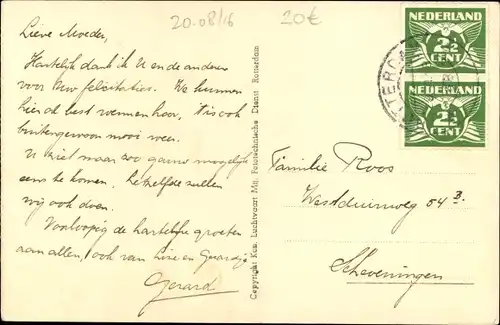 20-08/16
20€
Lieve Moeder,
Hartelijk dank ik U en de anderen
voor Uw felicitaties. We kunnen
hier al best wennen hoor, 't is ook
buitengewoon mooi weer.
U ziet maar zoo gauw mogelijk
eens te komen, hetzelfde zullen
wij ook doen.
Voorloopig de hartelijke groeten
aan allen, ook van
Gerard
Copyright Kon. Luchtvaart Mij. Fototechnische Dienst Rotterdam
NEDERLAND
2½
CENT
NEDERLAND
2½
CENT
Familie Roos
Westduinweg 54 B.
Scheveningen